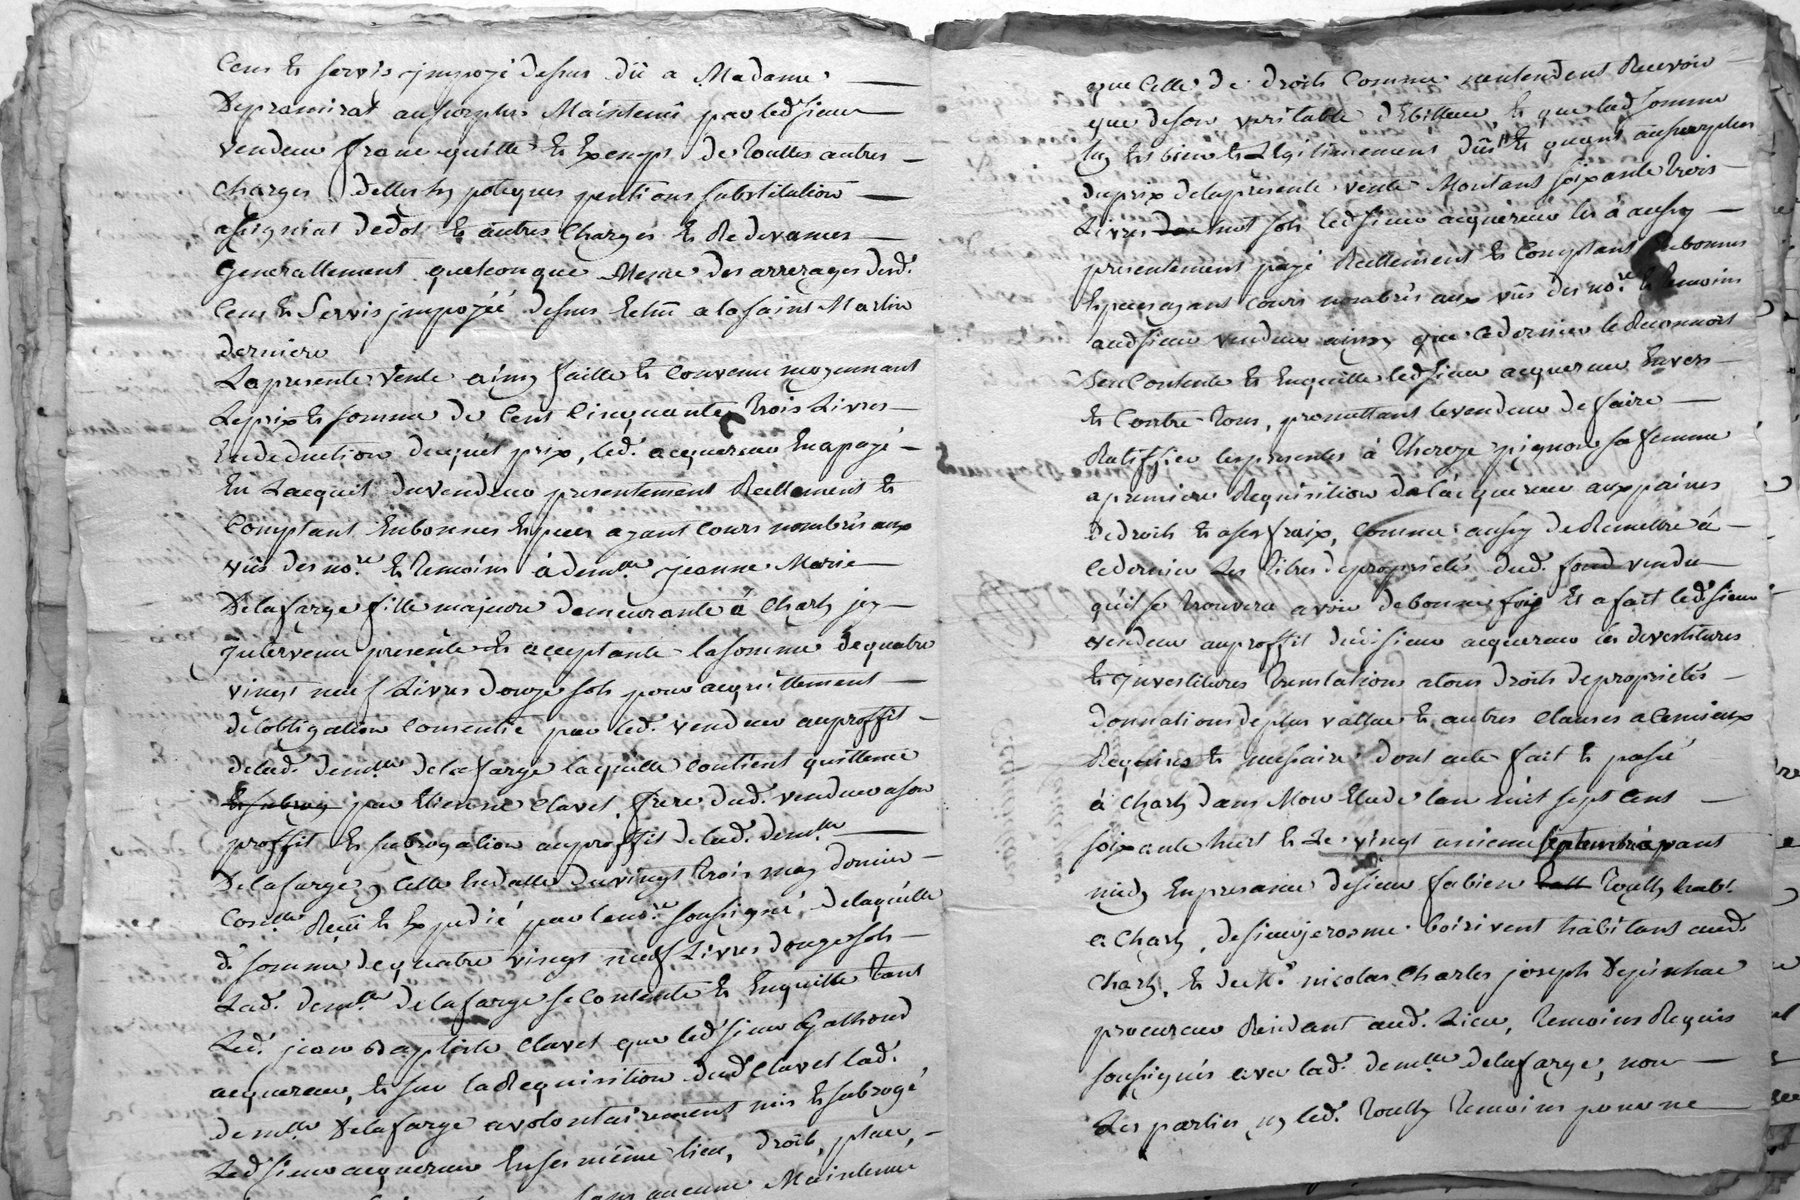 Cens & servis jmpozé dessus dü a Madame
Depramirat ausurplus Maintenû par ledsieur
vendeur franc quitte & Exempt de touttes autres
charges dettes hypoteques pentions substitution
assigniat dedot & autres Charges & Redevances
Generallement quelconque Mesme des arrerages desd.
Cens & Servis jmpozéé dessus Echû a lasaint Martin
derniere
La presente vente ainsy faitte & Convenue moyennant
Leprix & somme de Cent Cinquante trois Livres
Endeduction duquel prix, led. acquereur Enapayé
En Lacquit duvendeur presentement Reellement &
Comptant Enbonnes Especes ayant Cours nombrés aux
vüs des no.re & temoins à dem.lle jeanne Marie
Delafarge fille majeure demeurante à Charly jcy
jntervenue presente & acceptante lasomme dequatre
vingt neuf Livres douze sols pour acquittement
del'obligation Consentie par led. vendeur auproffit
deladitte dem.lle delafarge laquelle Contient quittence
& subrog par Etienne Clavel frere dud. vendeur ason
proffit & subrogation auproffit delad. dem.lle
Delafarge, Celle Endatte duvingt trois may dernier
Con.llé Reçû & Expedié par leno.re soussigné, delaquelle
d. somme dequatre vingt neuf Livres douze sols
Lad. dem.lle delafarge se Contente & Enquitte tant
Led. jean Baptiste Clavel que led sieur
acquereur, & sur la Requisition dud Clavel lad.
dem.lle Delafarge avolontairement mis & subrogé
Ledsieur acquereur Enses même lieu, droit, place,
sans aucune Maintenue
que Celle de droits Comme nentendant Recevoir
que deson veritable débitteur, & que lad somme
luy Est bien & Légitimement düe & quant ausurplus
duprix delapresente vente Montant soixante trois
Livres huit sols ledsieur acquereur les à aussy
presentement payé Reellement & Comptant Enbonnes
Especes ayant Cours nombrés aux vüs des no.re & temoins
audsieur vendeur ainsy que cedernier le Reconnoit
s'en Contente & Enquitte ledsieur acquereur Envers
& Contre tous, promettant levendeur defaire
Ratiffier lespresentes à Thereze pignon safemme
apremiere Requisition de l'acquereur aux paines
de droits & ases fraix, Comme aussy deRemettre à
cedernier Les titres depropriétés dud. fond vendu
qu'il se trouvera avoir debonne foix & a fait ledsieur
vendeur auproffit dud sieur acquereur les devestitures
& jnvestitures translations atous droits depropriétés
donnations deplus vallue & autres Clauses a Cemieux
Requises & nessaire dont acte fait & passé
à Charly dans Mon Etude lan mil sept Cent
soixante huit & Le vingt unieme septembre avant
midy Enpresance desieur fabien Toully habt.
a Charly, desieur jerosme boirivent habitant aud.
Charly, & de M.e nicolas Charles joseph
procureur Residant aud. Lieu, temoins Requis
soussignés avec lad. dem.lle delafarge, non
Les parties ny led. Toully temoins pour ne